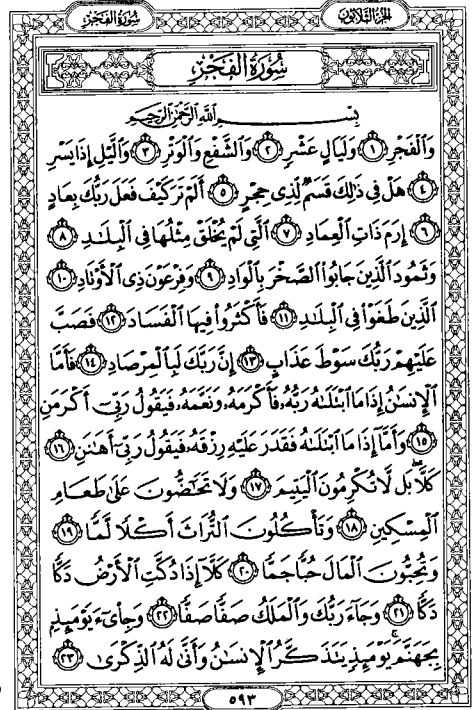 سُورَةُ الفَجْرِ الجُزْءُ الثَّلَاثُونَ
سُورَةُ الفَجْرِ
بِسْمِ اللَّهِ الرَّحْمَٰنِ الرَّحِيمِ
وَالْفَجْرِ ١ وَلَيَالٍ عَشْرٍ ٢ وَالشَّفْعِ وَالْوَتْرِ ٣ وَالَّيْلِ إِذَا يَسْرِ
٤ هَلْ فِي ذَٰلِكَ قَسَمٌ لِّذِي حِجْرٍ ٥ أَلَمْ تَرَ كَيْفَ فَعَلَ رَبُّكَ بِعَادٍ
٦ إِرَمَ ذَاتِ الْعِمَادِ ٧ الَّتِي لَمْ يُخْلَقْ مِثْلُهَا فِي الْبِلَٰدِ ٨
وَثَمُودَ الَّذِينَ جَابُوا الصَّخْرَ بِالْوَادِ ٩ وَفِرْعَوْنَ ذِي الْأَوْتَادِ ١٠
الَّذِينَ طَغَوْا فِي الْبِلَٰدِ ١١ فَأَكْثَرُوا فِيهَا الْفَسَادَ ١٢ فَصَبَّ
عَلَيْهِمْ رَبُّكَ سَوْطَ عَذَابٍ ١٣ إِنَّ رَبَّكَ لَبِالْمِرْصَادِ ١٤ فَأَمَّا
الْإِنسَٰنُ إِذَا مَا ابْتَلَىٰهُ رَبُّهُۥ فَأَكْرَمَهُۥ وَنَعَّمَهُۥ فَيَقُولُ رَبِّي أَكْرَمَنِ
١٥ وَأَمَّا إِذَا مَا ابْتَلَىٰهُ فَقَدَرَ عَلَيْهِ رِزْقَهُۥ فَيَقُولُ رَبِّي أَهَٰنَنِ ١٦
كَلَّا ۖ بَل لَّا تُكْرِمُونَ الْيَتِيمَ ١٧ وَلَا تَحَٰضُّونَ عَلَىٰ طَعَامِ
الْمِسْكِينِ ١٨ وَتَأْكُلُونَ التُّرَاثَ أَكْلًا لَّمًّا ١٩
وَتُحِبُّونَ الْمَالَ حُبًّا جَمًّا ٢٠ كَلَّا إِذَا دُكَّتِ الْأَرْضُ دَكًّا
دَكًّا ٢١ وَجَاءَ رَبُّكَ وَالْمَلَكُ صَفًّا صَفًّا ٢٢ وَجِا۟ىٓءَ يَوْمَئِذٍ
بِجَهَنَّمَ ۚ يَوْمَئِذٍ يَتَذَكَّرُ الْإِنسَٰنُ وَأَنَّىٰ لَهُ الذِّكْرَىٰ ٢٣
٥٩٣